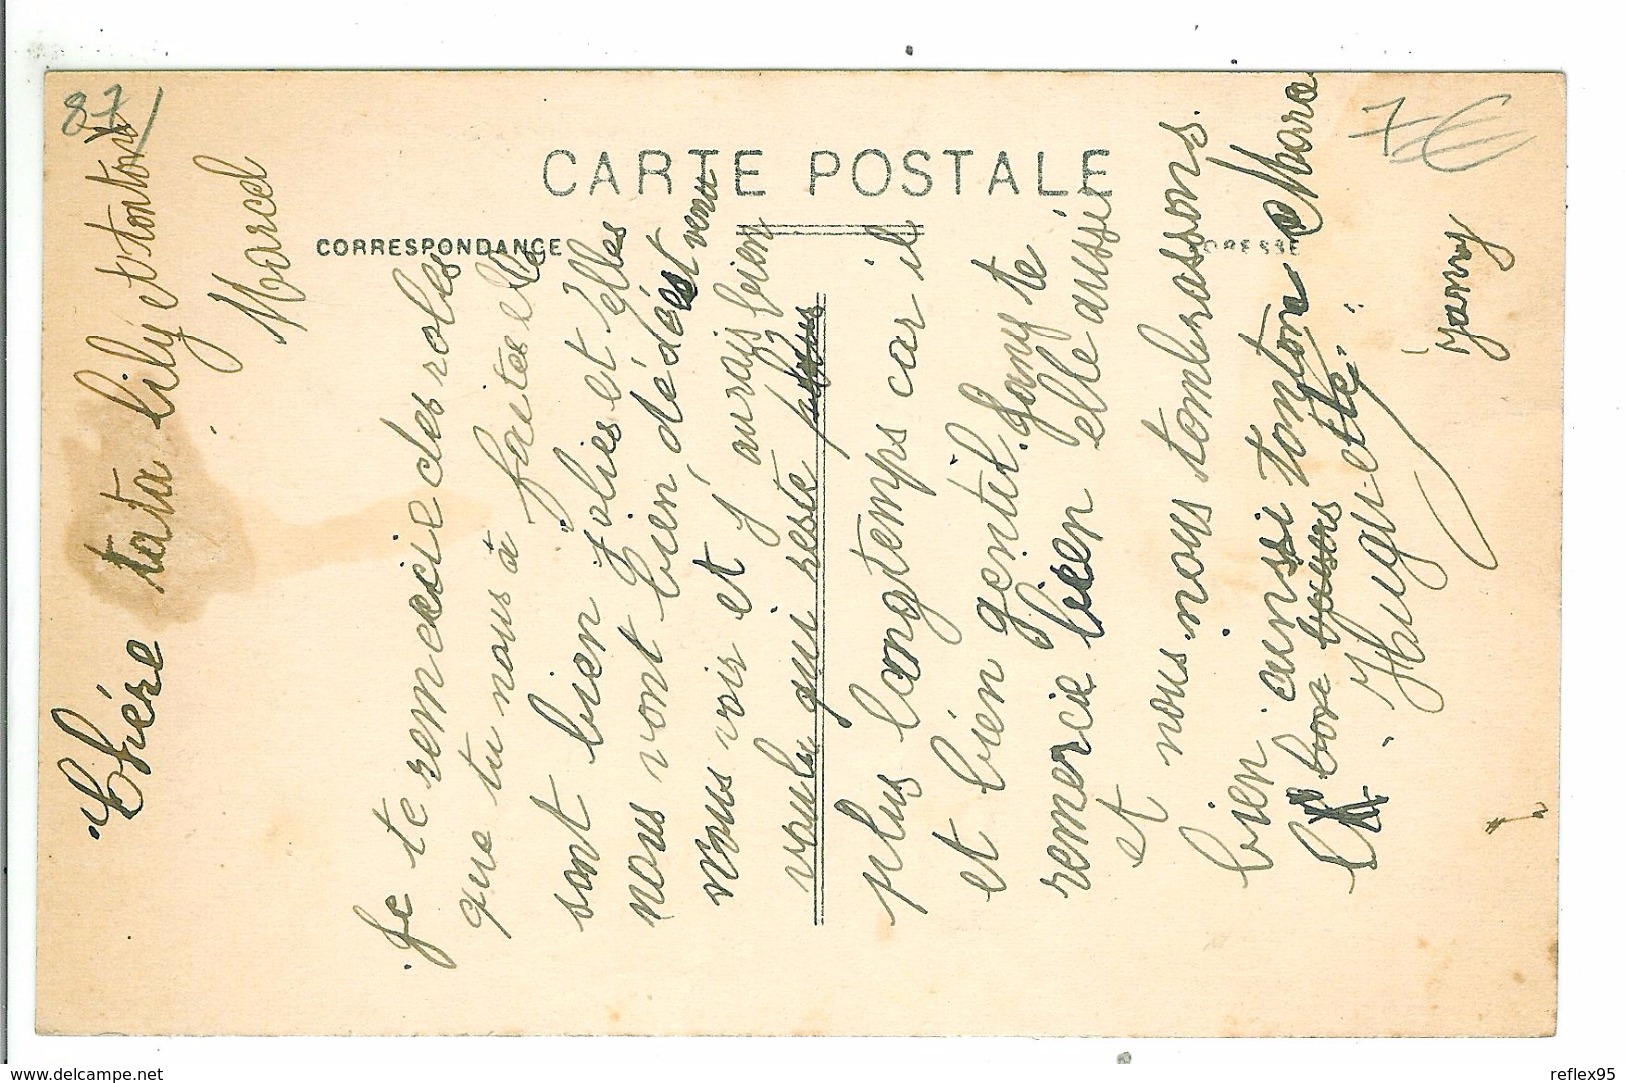 87
7€
CARTE POSTALE
CORRESPONDANCE
Chére tata Lily et tonton
Marcel
Je te remeccie des robes
que tu nous à faites elles
sont bien jolies et élles
nous vont bien dédé ést venu
nous voir et j'aurais beion
voulu qui reste plus
plus longtemps car il
et bien gentil. Jany te
remercie bien elle aussie
et nous nous tembrassons
bien aunssi tonton Marce
bon baisers
Huguette
Janny
www.delcampe.net
reflex95